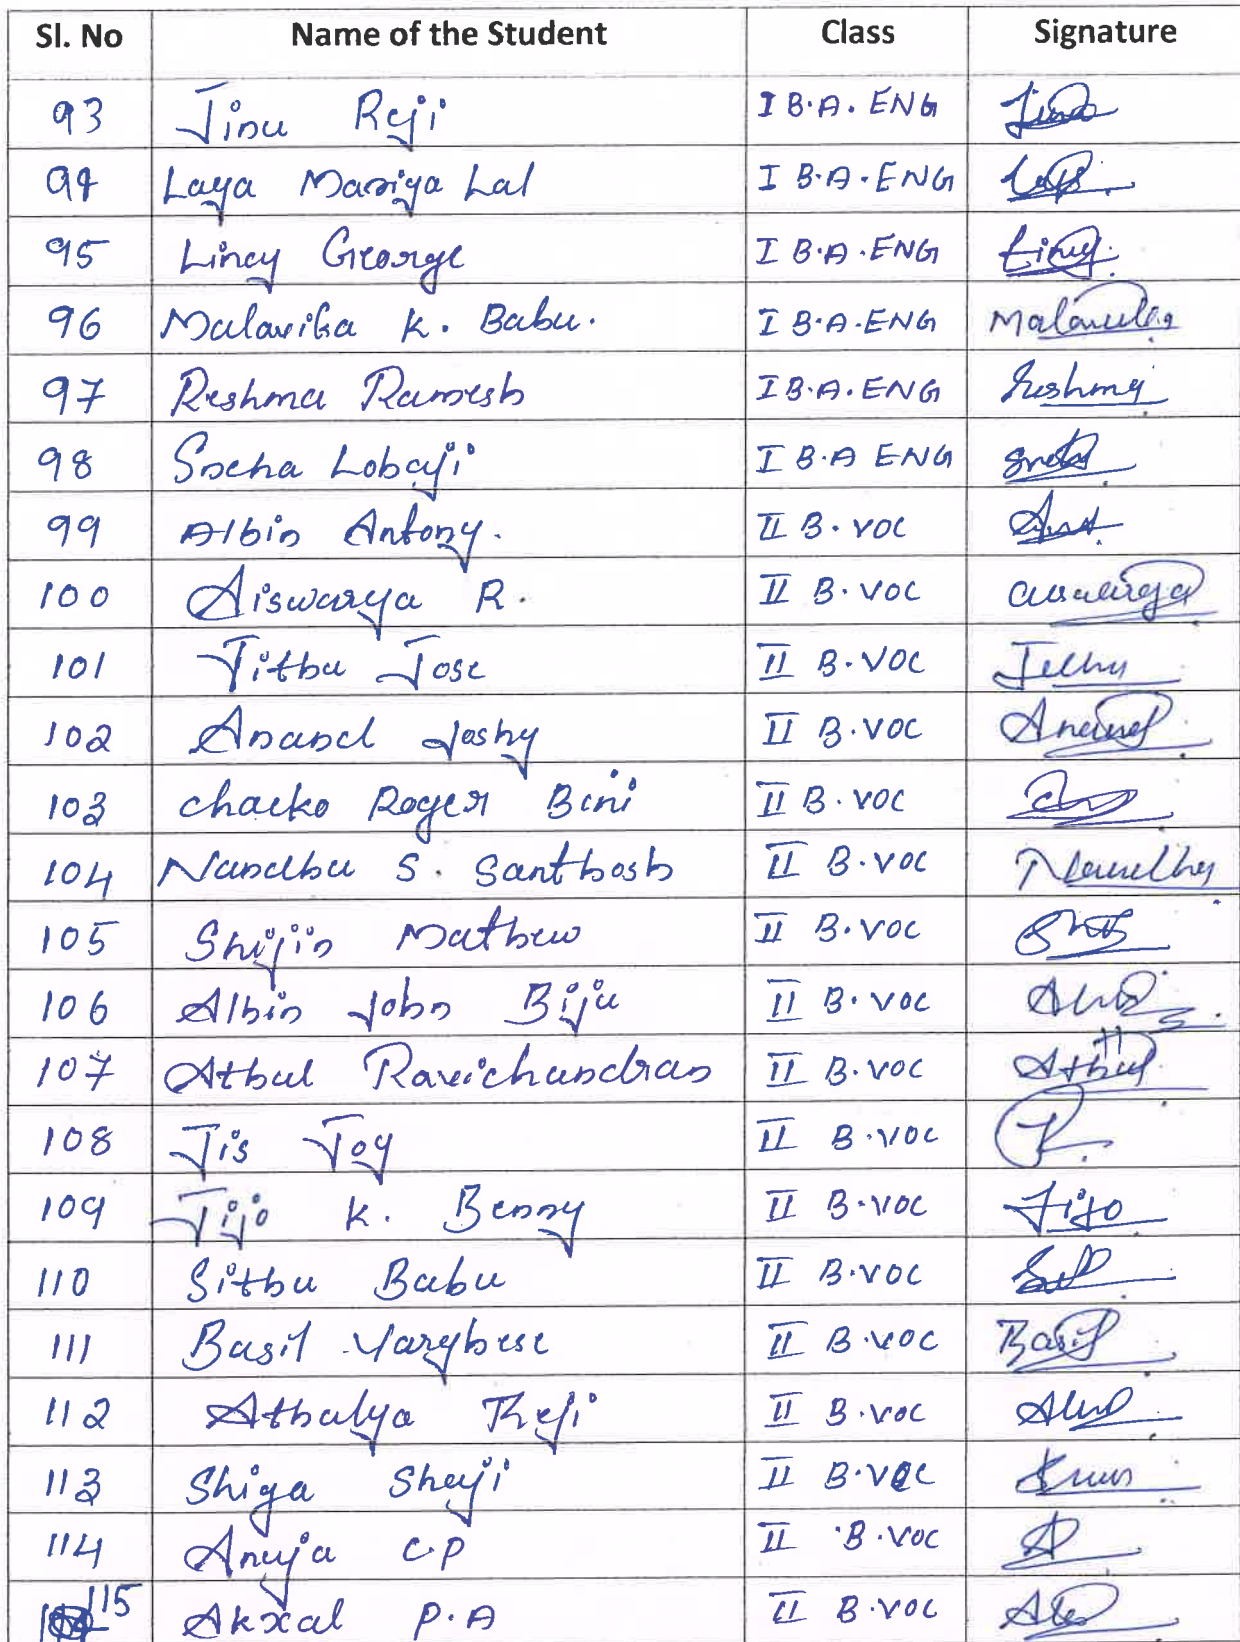 Sl. No Name of the Student Class Signature
93 Jinu Reji I B.A. ENG
94 Laya Mariya Lal I B.A. ENG
95 Lincy George I B.A. ENG Lincy
96 Malavika K. Babu. I B.A. ENG Malavika
97 Reshma Ramesh I B.A. ENG Reshma
98 Sneha Lobaji I B.A ENG Sneha
99 Albin Antony. II B. VOC
100 Aiswarya R. II B. VOC
101 Jithu Jose II B. VOC
102 Anand Joshy II B. VOC Anand
103 Chacko Roger Bini II B. VOC
104 Nandhu S. Santhosh II B. VOC Nandhu
105 Shijin Mathew II B. VOC
106 Albin John Biju II B. VOC
107 Athul Ravichandran II B. VOC Athul
108 Jis Joy II B. VOC
109 Jijo K. Benny II B. VOC Jijo
110 Sithu Babu II B. VOC
111 Basil Varghese II B. VOC Basil
112 Athulya Theji II B. VOC
113 Shiga Shaji II B. VOC
114 Anuja C.P II B. VOC
115 Akxal P.A II B. VOC